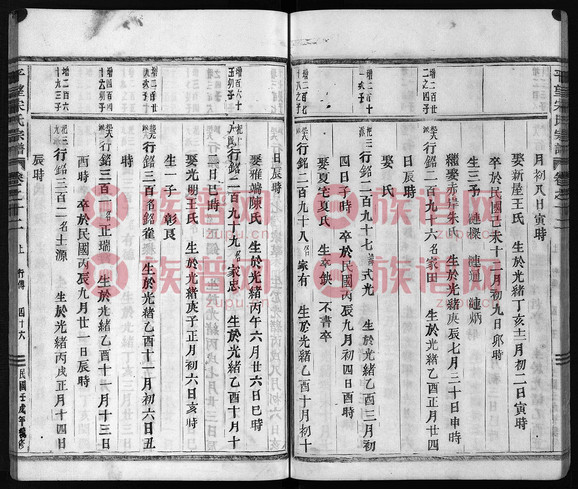 月初八日寅時
娶新屋王氏 生於光緒丁亥三月初二日寅時
卒於民國己未十二月初九日卯時
生三子 漣 漣通 漣炳
繼娶赤岸朱氏 生於光緒庚辰七月三十日申時
行銘二百九十六名家田 生於光緒乙酉正月廿四
日辰時
娶 氏
行銘二百九十七 式光 生於光緒乙酉三月初
四日子時 卒於民國丙辰九月初四日時
娶夏宅夏氏 生卒缺 不書卒
行銘二百九十八 家有 生於光緒乙酉十月初十
日辰時
娶雅端陳氏 生於光緒丙午六月廿六日巳時
行銘二百九十九名家忠 生於光緒乙酉十月十
二日巳時
娶光明王氏 生於光緒庚子正月初六日亥時
生一子 彰良
行銘三百名銘 生於光緒乙酉十一月初六日丑
時
行銘三百一名正瑞 生於光緒乙酉十一月十三日
酉時 卒於民國丙辰九月廿一日辰時
行銘三百二名土源 生於光緒丙戌正月十四日
辰時
平望宋氏宗譜 卷之十二 上 行傳 四十六 民國壬戌年重修
族谱网
zupu.cn